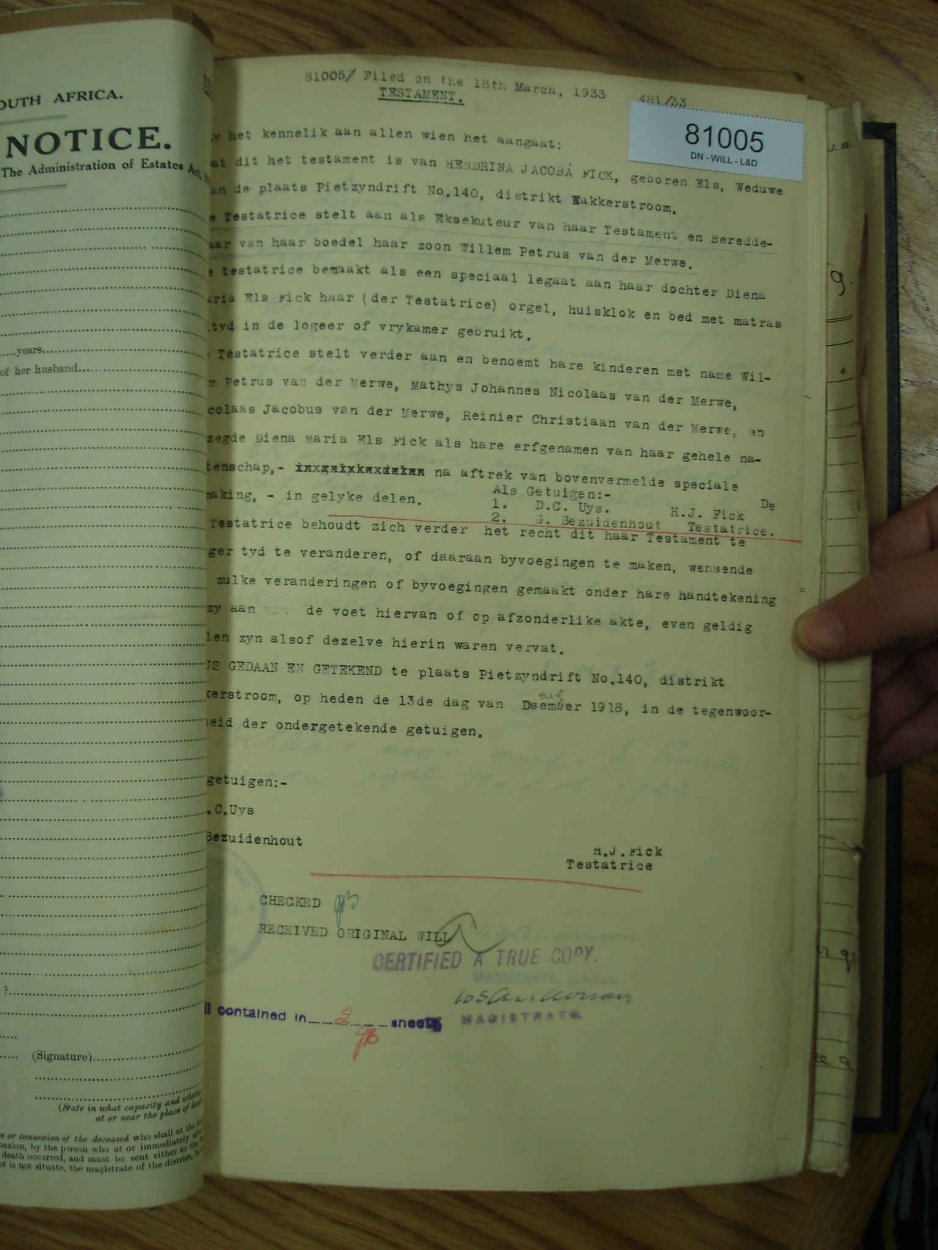 OUTH AFRICA.
NOTICE.
The Administration of Estates Act,
years
of her husband
?
(Signature)
(State in what capacity and whether
at or near the place of
e or connexion of the deceased who shall at the
nexion, by the person who at or immediately
death occurred, and must be sent either to the
t is not situate, the magistrate of the district,
81005/ Filed on the 18th March, 1933 481/33
TESTAMENT.
81005
DN - WILL - L&D
y het kennelik aan allen wien het aangaat:
at dit het testament is van HENDRINA JACOBA FICK, geboren Els, Weduwe
an de plaats Pietzyndrift No.140, distrikt Wakkerstroom.
e Testatrice stelt aan als Eksekuteur van haar Testament en Beredde-
aar van haar boedel haar zoon Willem Petrus van der Merwe.
e testatrice bemaakt als een speciaal legaat aan haar dochter Diena
aria Els Fick haar (der Testatrice) orgel, huisklok en bed met matras
tyd in de logeer of vrykamer gebruikt.
Testatrice stelt verder aan en benoemt hare kinderen met name Wil-
m Petrus van der Merwe, Mathys Johannes Nicolaas van der Merwe,
colaas Jacobus van der Merwe, Reinier Christiaan van der Merwe, en
zegde Diena Maria Els Fick als hare erfgenamen van haar gehele na-
tenschap,- na aftrek van bovenvermelde speciale
making, - in gelyke delen. De
Als Getuigen:-
1. D.C. Uys. H.J. Fick
2. G. Bezuidenhout Testatrice.
Testatrice behoudt zich verder het recht dit haar Testament te
ger tyd te veranderen, of daaraan byvoegingen te maken, wensende
zulke veranderingen of byvoegingen gemaakt onder hare handtekening
zy aan de voet hiervan of op afzonderlike akte, even geldig
len zyn alsof dezelve hierin waren vervat.
US GEDAAN EN GETEKEND te plaats Pietzyndrift No.140, distrikt
kerstroom, op heden de 13de dag van Dsember 1918, in de tegenwoor-
heid der ondergetekende getuigen.
getuigen:-
.C.Uys
Bezuidenhout
H.J.Fick
Testatrice
CHECKED
RECEIVED ORIGINAL WILL
CERTIFIED A TRUE COPY.
MAGISTRATE
contained in 2 sheets